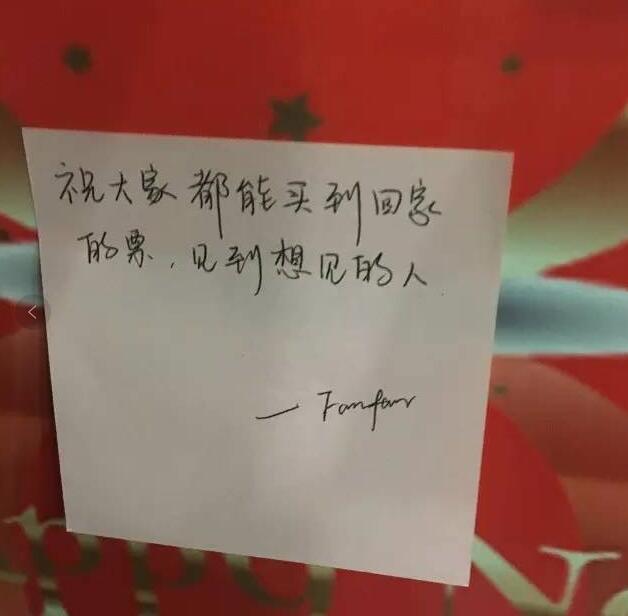 祝大家都能买到回家
的票,见到想见的人
— Fanfan
ppy Ne